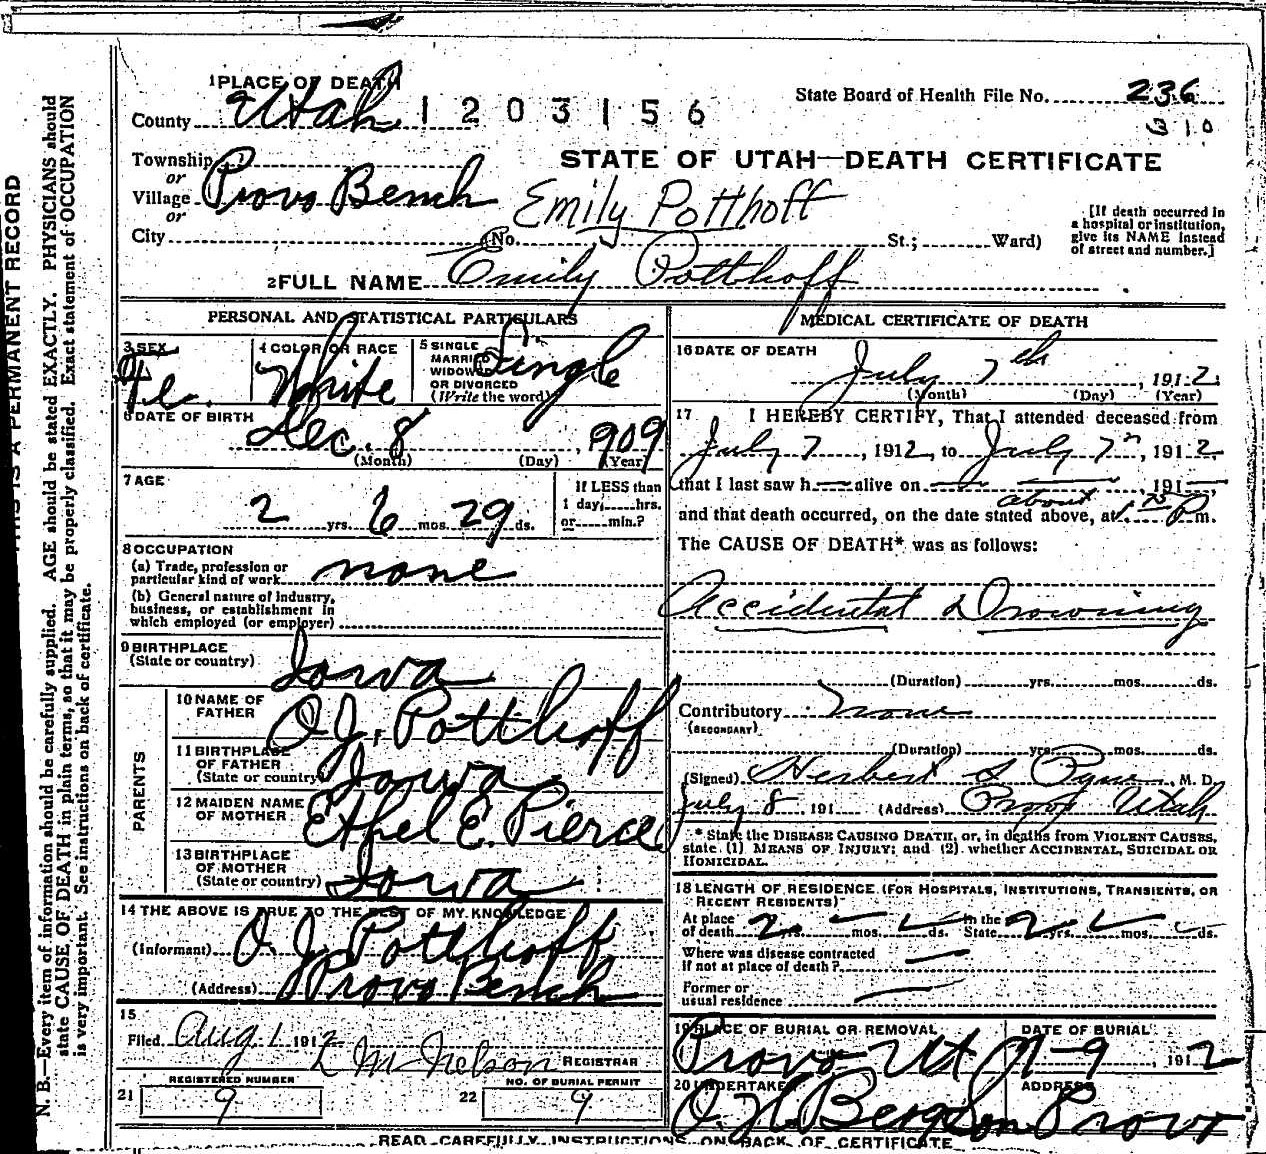 1 PLACE OF DEATH
County Utah 1 2 0 3 1 5 6
State Board of Health File No. 236
310
Township
or
Village Provo Bench
or
City
STATE OF UTAH—DEATH CERTIFICATE
Emily Potthoff
(No. St.; Ward)
[If death occurred in
a hospital or institution,
give its NAME instead
of street and number.]
2 FULL NAME Emily Potthoff
PERSONAL AND STATISTICAL PARTICULARS
3 SEX Fe.
4 COLOR OR RACE White
5 SINGLE
MARRIED
WIDOWED
OR DIVORCED
(Write the word)
Single
6 DATE OF BIRTH
Dec. 8, 1909
(Month) (Day) (Year)
7 AGE
2 yrs. 6 mos. 29 ds.
If LESS than
1 day, hrs.
or min.?
8 OCCUPATION
(a) Trade, profession or
particular kind of work none
(b) General nature of industry,
business, or establishment in
which employed (or employer)
9 BIRTHPLACE
(State or country) Iowa
PARENTS
10 NAME OF
FATHER O J. Potthoff
11 BIRTHPLACE
OF FATHER
(State or country) Iowa
12 MAIDEN NAME
OF MOTHER Ethel E. Pierce
13 BIRTHPLACE
OF MOTHER
(State or country) Iowa
14 THE ABOVE IS TRUE TO THE BEST OF MY KNOWLEDGE
(Informant) O. J. Potthoff
(Address) Provo Bench
15
Filed Aug 1 1912 L M Nelson REGISTRAR
21 REGISTERED NUMBER 9
22 NO. OF BURIAL PERMIT 9
MEDICAL CERTIFICATE OF DEATH
16 DATE OF DEATH
July 7th, 1912
(Month) (Day) (Year)
17 I HEREBY CERTIFY, That I attended deceased from
July 7, 1912, to July 7th, 1912,
that I last saw h— alive on — —, 191—,
about
and that death occurred, on the date stated above, at P m.
The CAUSE OF DEATH* was as follows:
Accidental Drowning
(Duration) yrs. mos. ds.
Contributory none
(SECONDARY)
(Duration) yrs. mos. ds.
(Signed) Herbert S Pyne, M. D.
July 8, 191 (Address) Provo Utah
* State the DISEASE CAUSING DEATH, or, in deaths from VIOLENT CAUSES,
state (1) MEANS OF INJURY; and (2) whether ACCIDENTAL, SUICIDAL OR
HOMICIDAL.
18 LENGTH OF RESIDENCE (FOR HOSPITALS, INSTITUTIONS, TRANSIENTS, OR
RECENT RESIDENTS)
At place
of death 2 yrs. — mos. ds. In the
State 2 yrs. mos. ds.
Where was disease contracted
if not at place of death? —
Former or
usual residence —
19 PLACE OF BURIAL OR REMOVAL
Provo Ut
DATE OF BURIAL
7-9, 1912
20 UNDERTAKER
O. H. Berg & Son
ADDRESS
Provo
READ CAREFULLY INSTRUCTIONS ON BACK OF CERTIFICATE
THIS IS A PERMANENT RECORD
N. B.—Every item of information should be carefully supplied. AGE should be stated EXACTLY. PHYSICIANS should
state CAUSE OF DEATH in plain terms, so that it may be properly classified. Exact statement of OCCUPATION
is very important. See instructions on back of certificate.